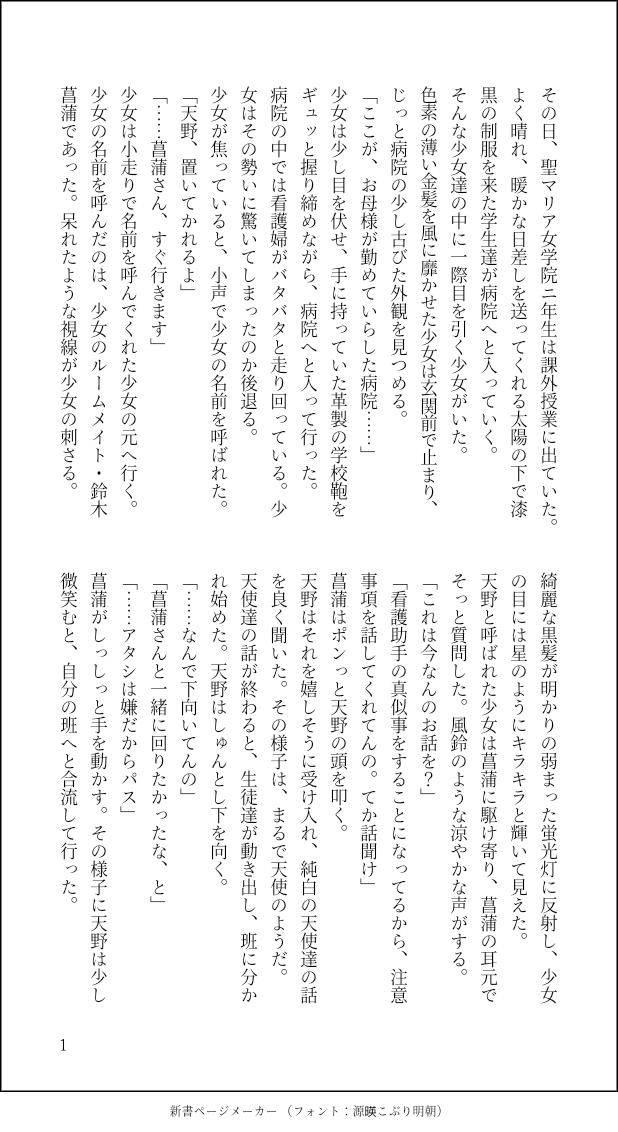 その日、聖マリア女学院二年生は課外授業に出ていた。
よく晴れ、暖かな日差しを送ってくれる太陽の下で漆
黒の制服を来た学生達が病院へと入っていく。
そんな少女達の中に一際目を引く少女がいた。
色素の薄い金髪を風に靡かせた少女は玄関前で止まり、
じっと病院の少し古びた外観を見つめる。
「ここが、お母様が勤めていらした病院……」
少女は少し目を伏せ、手に持っていた革製の学校鞄を
ギュッと握り締めながら、病院へと入って行った。
病院の中では看護婦がバタバタと走り回っている。少
女はその勢いに驚いてしまったのか後退る。
少女が焦っていると、小声で少女の名前を呼ばれた。
「天野、置いてかれるよ」
「……菖蒲さん、すぐ行きます」
少女は小走りで名前を呼んでくれた少女の元へ行く。
少女の名前を呼んだのは、少女のルームメイト・鈴木
菖蒲であった。呆れたような視線が少女の刺さる。
綺麗な黒髪が明かりの弱まった蛍光灯に反射し、少女
の目には星のようにキラキラと輝いて見えた。
天野と呼ばれた少女は菖蒲に駆け寄り、菖蒲の耳元で
そっと質問した。風鈴のような涼やかな声がする。
「これは今なんのお話を？」
「看護助手の真似事をすることになってるから、注意
事項を話してくれてんの。てか話聞け」
菖蒲はポンっと天野の頭を叩く。
天野はそれを嬉しそうに受け入れ、純白の天使達の話
を良く聞いた。その様子は、まるで天使のようだ。
天使達の話が終わると、生徒達が動き出し、班に分か
れ始めた。天野はしゅんとし下を向く。
「……なんで下向いてんの」
「菖蒲さんと一緒に回りたかったな、と」
「……アタシは嫌だからパス」
菖蒲がしっしっと手を動かす。その様子に天野は少し
微笑むと、自分の班へと合流して行った。
1
新書ページメーカー（フォント：源暎こぶり明朝）